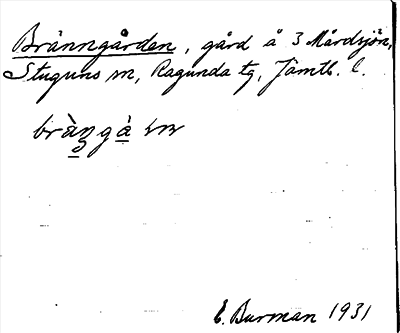 Bränngården, gård å 3 Mårdsjön,
Stuguns sn, Ragunda tg, Jämtl. l.
E. Burman 1931